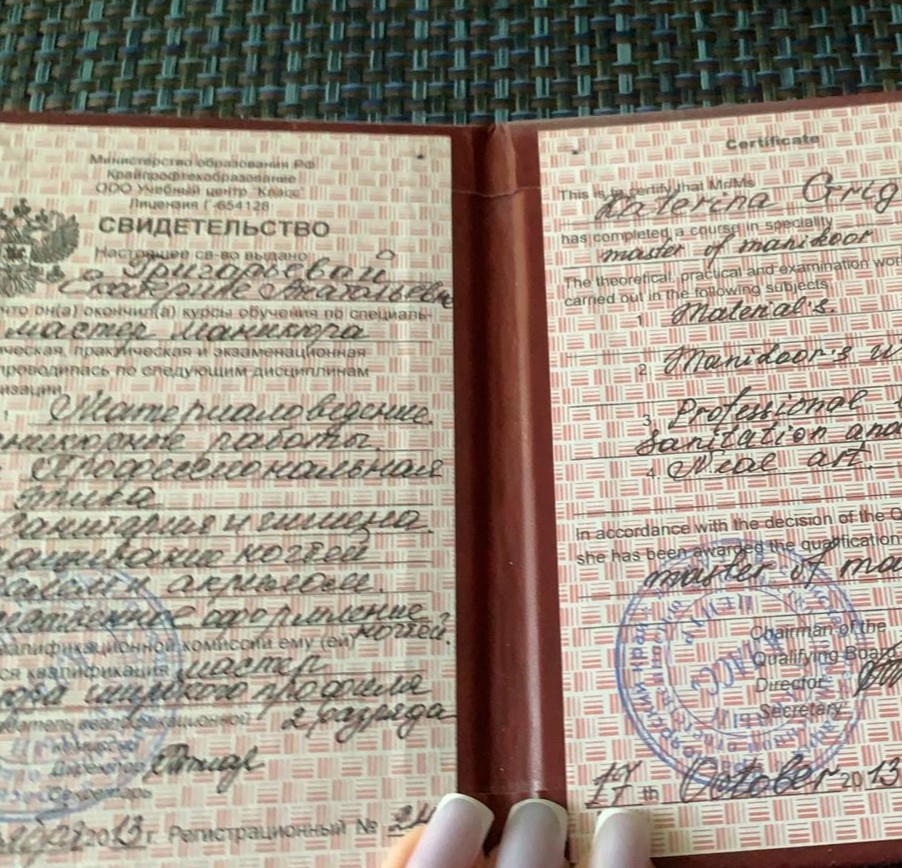 Министерство образования РФ
Крайпрофтехобразование
ООО Учебный центр "Класс"
Лицензия Г-654128
СВИДЕТЕЛЬСТВО
Настоящее св-во выдано
Григорьевой
Екатерине Анатольевне
что он(а) окончил(а) курсы обучения по специаль-
мастер маникюра
ческая, практическая и экзаменационная
проводилась по следующим дисциплинам
изации
1. Материаловедение.
работы.
Профессиональная
этика
Санитария и гигиена.
ногтей
акрилом.
оформление
ногтей.
квалификационной комиссии ему (ей)
ся квалификация мастер
широкого профиля
2 разряда
Директор
Секретарь
2013 г. Регистрационный №
Certificate
This is to certify that Mr/Ms
Katerina Grig
has completed a course in speciality
master of manikoor
The theoretical, practical and examination wor
carried out in the following subjects
1. Material's.
2. Manidoor's w
3. Professional
Sanitation and
4. Neal art.
In accordance with the decision of the Q
she has been awarded the qualification
master of ma
Chairman of the
Qualifying Board
Director
Secretary
17 th October 2013